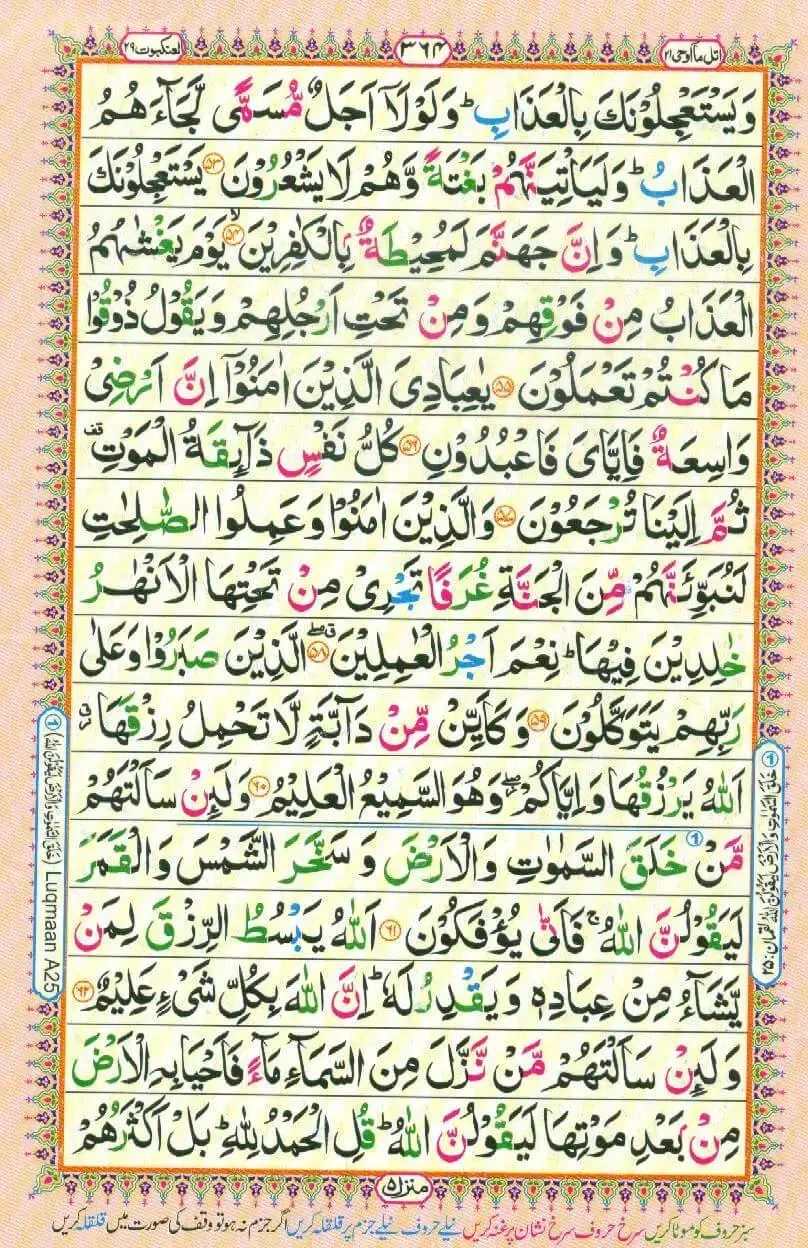 اتل ما اوحی ۲۱
۳۶۴
العنکبوت ۲۹
وَيَسْتَعْجِلُوْنَكَ بِالْعَذَابِ ؕ وَلَوْلَاۤ اَجَلٌ مُّسَمًّی لَّجَآءَهُمُ
الْعَذَابُ ؕ وَلَيَاْتِيَنَّهُمْ بَغْتَةً وَّهُمْ لَا يَشْعُرُوْنَ ﴿۵۳﴾ يَسْتَعْجِلُوْنَكَ
بِالْعَذَابِ ؕ وَاِنَّ جَهَنَّمَ لَمُحِيْطَةٌۢ بِالْكٰفِرِيْنَ ﴿۵۴﴾ۙ يَوْمَ يَغْشٰىهُمُ
الْعَذَابُ مِنْ فَوْقِهِمْ وَمِنْ تَحْتِ اَرْجُلِهِمْ وَيَقُوْلُ ذُوْقُوْا
مَا كُنْتُمْ تَعْمَلُوْنَ ﴿۵۵﴾ يٰعِبَادِیَ الَّذِيْنَ اٰمَنُوْۤا اِنَّ اَرْضِیْ
وَاسِعَةٌ فَاِيَّایَ فَاعْبُدُوْنِ ﴿۵۶﴾ كُلُّ نَفْسٍ ذَآئِقَةُ الْمَوْتِ قف
ثُمَّ اِلَيْنَا تُرْجَعُوْنَ ﴿۵۷﴾ وَالَّذِيْنَ اٰمَنُوْا وَعَمِلُوا الصّٰلِحٰتِ
لَنُبَوِّئَنَّهُمْ مِّنَ الْجَنَّةِ غُرَفًا تَجْرِیْ مِنْ تَحْتِهَا الْاَنْهٰرُ
خٰلِدِيْنَ فِيْهَا ؕ نِعْمَ اَجْرُ الْعٰمِلِيْنَ ﴿۵۸﴾ۖق الَّذِيْنَ صَبَرُوْا وَعَلٰی
رَبِّهِمْ يَتَوَكَّلُوْنَ ﴿۵۹﴾ وَكَاَيِّنْ مِّنْ دَآبَّةٍ لَّا تَحْمِلُ رِزْقَهَا
اَللّٰهُ يَرْزُقُهَا وَاِيَّاكُمْ ۖ وَهُوَ السَّمِيْعُ الْعَلِيْمُ ﴿۶۰﴾ وَلَئِنْ سَاَلْتَهُمْ
مَّنْ خَلَقَ السَّمٰوٰتِ وَالْاَرْضَ وَسَخَّرَ الشَّمْسَ وَالْقَمَرَ
لَيَقُوْلُنَّ اللّٰهُ ۚ فَاَنّٰی يُؤْفَكُوْنَ ﴿۶۱﴾ اَللّٰهُ يَبْسُطُ الرِّزْقَ لِمَنْ
يَّشَآءُ مِنْ عِبَادِهٖ وَيَقْدِرُ لَهٗ ؕ اِنَّ اللّٰهَ بِكُلِّ شَیْءٍ عَلِيْمٌ ﴿۶۲﴾
وَلَئِنْ سَاَلْتَهُمْ مَّنْ نَّزَّلَ مِنَ السَّمَآءِ مَآءً فَاَحْيَا بِهِ الْاَرْضَ
مِنْۢ بَعْدِ مَوْتِهَا لَيَقُوْلُنَّ اللّٰهُ ؕ قُلِ الْحَمْدُ لِلّٰهِ ؕ بَلْ اَكْثَرُهُمْ
① خَلَقَ السَّمٰوٰتِ وَالْاَرْضَ لَيَقُوْلُنَّ اللّٰهُ لقمان: ۲۵
① (خَلَقَ السَّمٰوٰتِ وَالْاَرْضَ لَيَقُوْلُنَّ اللّٰهُ) Luqmaan A25
منزل ۵
سبز حروف کو موٹا کریں سرخ حروف سرخ نشان پر غنہ کریں نیلے حروف نیلے جزم پر قلقلہ کریں اگر جزم نہ ہو تو وقف کی صورت میں قلقلہ کریں